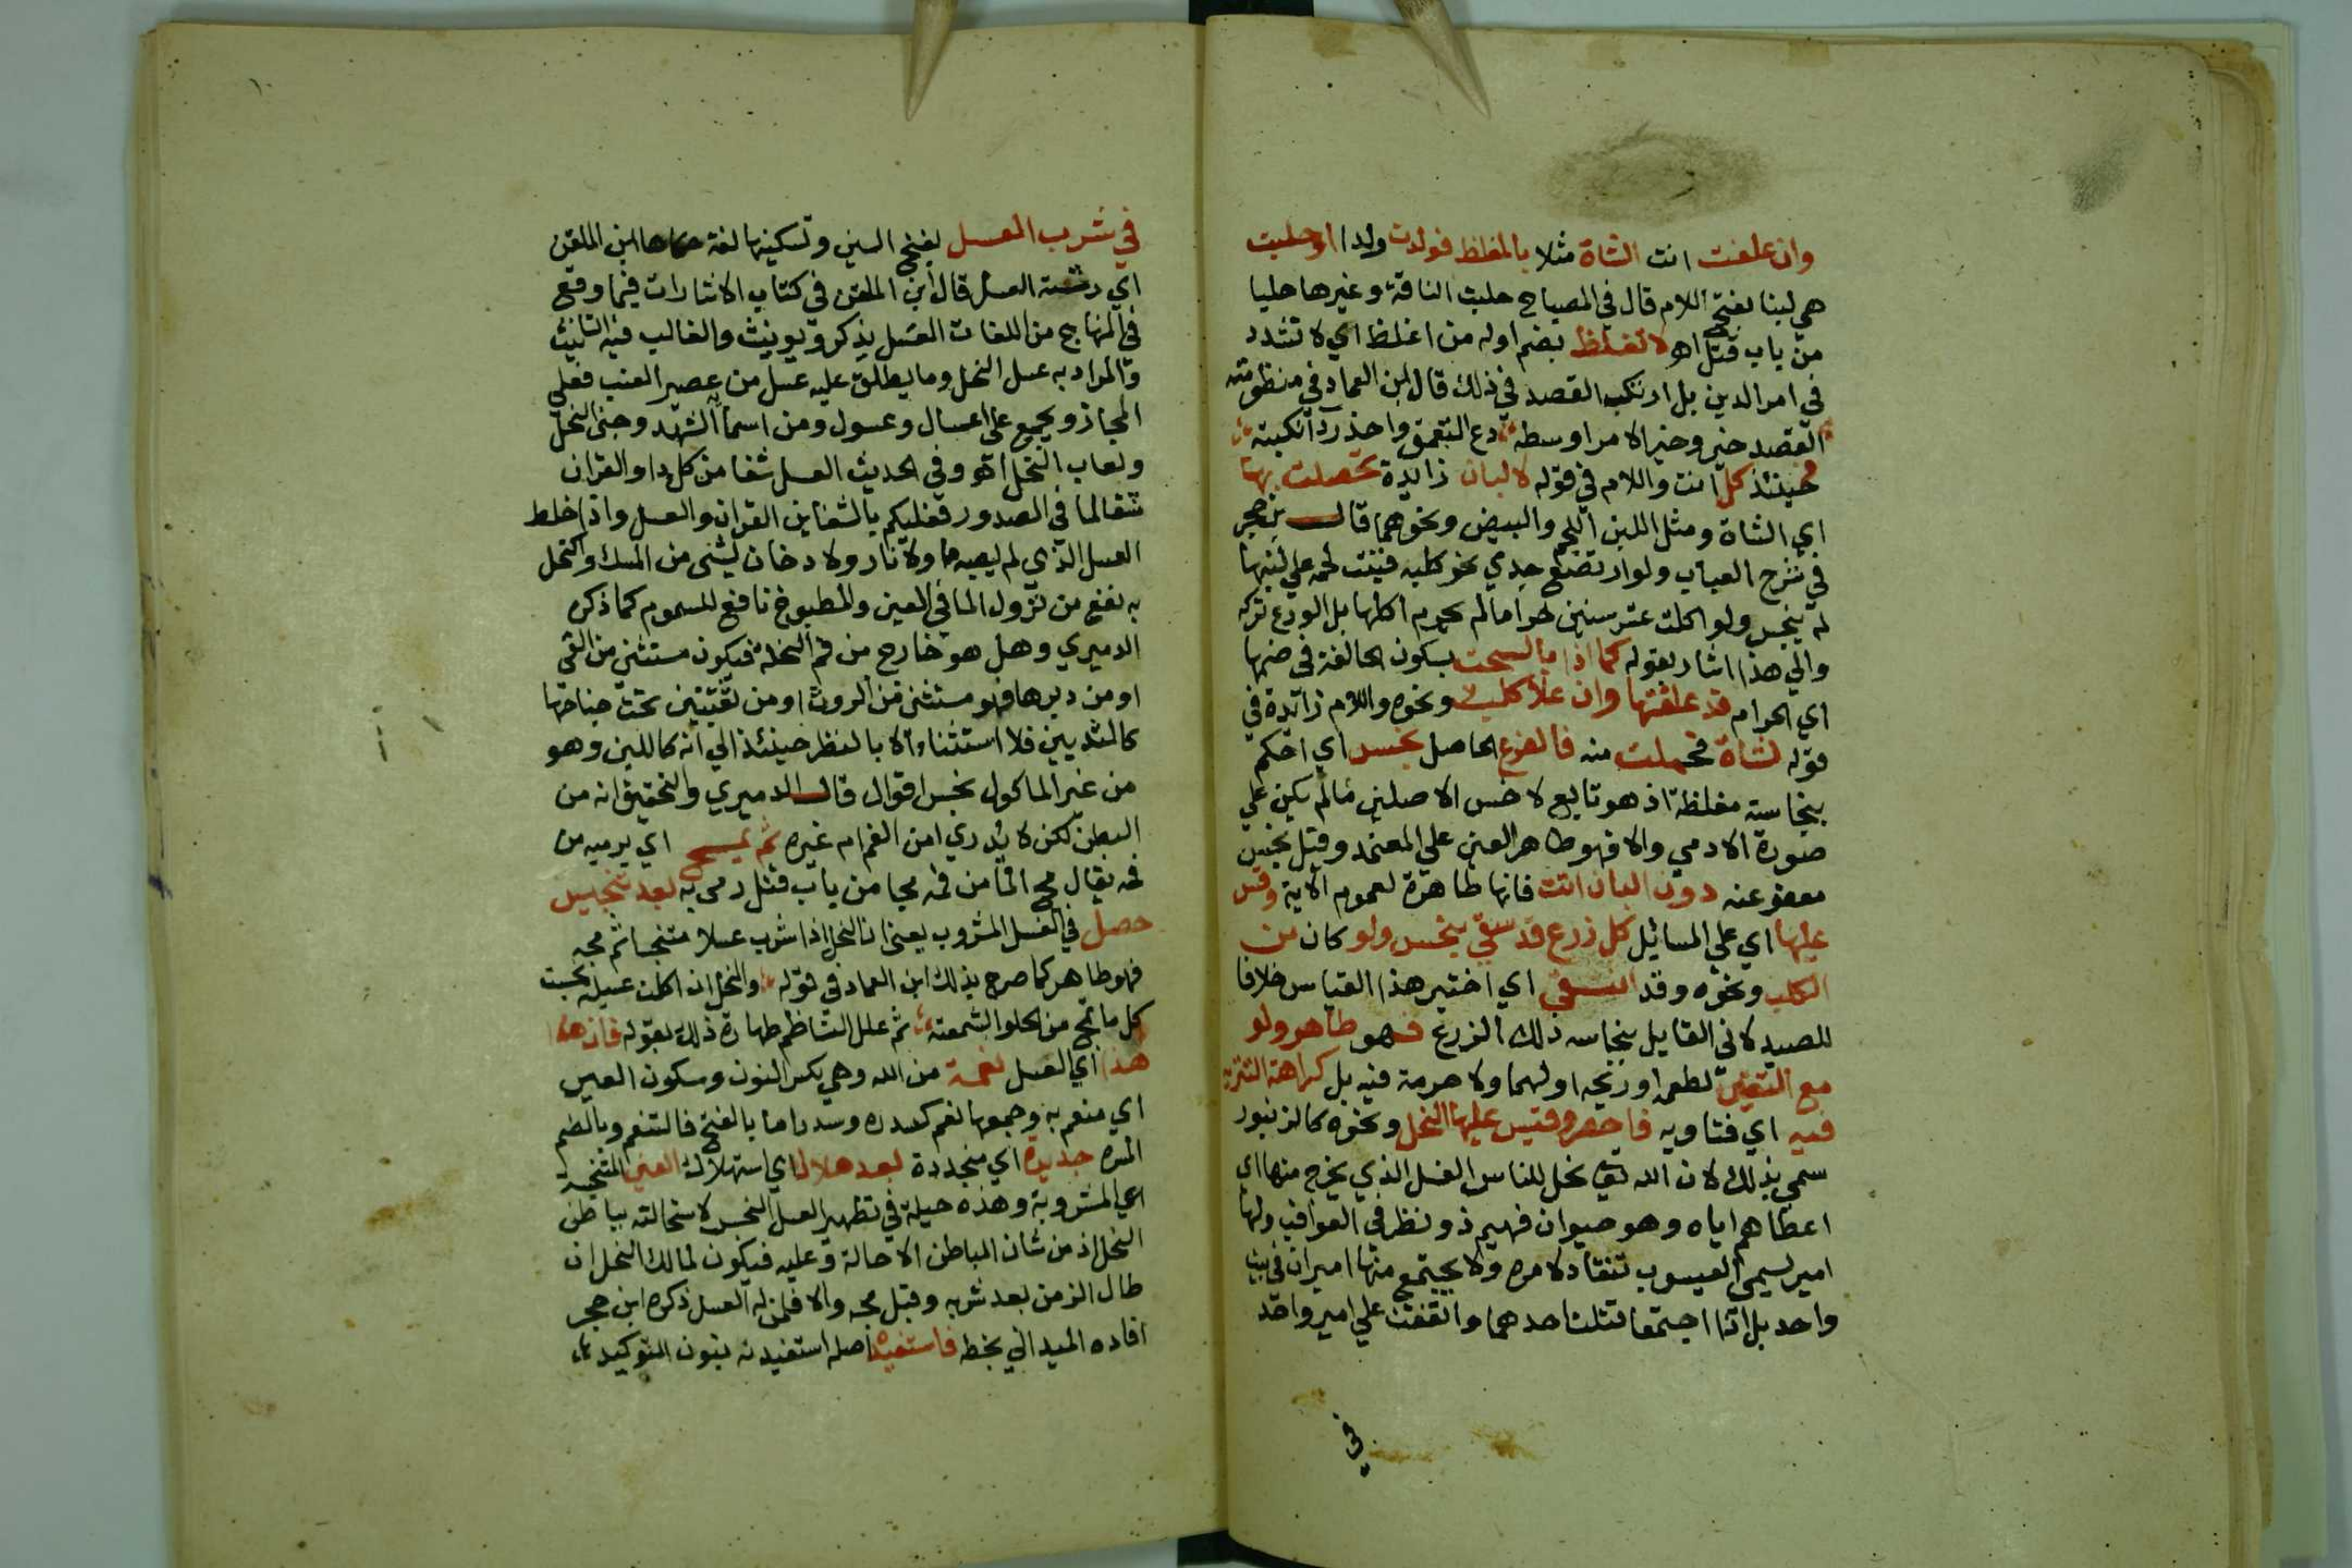 وان علفت انت الشاة مثلا بالمغلظ فولدت ولدا او حلبت
هي لبنا بفتح اللام قال في المصباح حلبت الناقة وغيرها حلبا
من باب قتل اهـ لا تغلظ بضم اوله من اغلظ اي لا تشدد
في امر الدين بل ارتكب القصد في ذلك قال ابن العماد في منظومته
القصد خير وخير الامر اوسطه دع التعمق واحذر
فحينئذ كل انت واللام في قوله لالبان زايدة تحصلت بها
اي الشاة ومثل اللبن اللحم والبيض ونحوهما قال بن حجر
في شرح العباب ولو ارتضع جدي نحو كلبه فينبت لحمه علي لبنها
لم ينجس ولو اكلت عشر سنين حراما لم يحرم اكلها بل الورع تركه
والي هذا اشار بقوله كما اذا بالسحت بسكون الحا لغة في ضمها
اي الحرام قد علفتها وان علا كلب ونحوه واللام زائدة في
قوله لشاة فحملت منه فالفرع الحاصل نجس اي احكم
بنجاسته مغلظة اذ هو تابع لاخس الاصلين مالم يكن علي
صورة الادمي والا فهو طاهر العين علي المعتمد وقيل نجس
معفو عنه دون البان اتت فانها طاهرة لعموم الاية وقس
عليها اي علي المسائل كل زرع قد سقي بنجس ولو كان من
الكلب ونحوه وقد انتقي اي اختير هذا القياس خلافا
للصيدلاني القايل بنجاسه ذلك الزرع فهو طاهر ولو
مع التغير لطعم او ريحه او لهما ولا حرمة فيه بل كراهة التنزه
فيه اي فتاويه فاحفر وقيس عليها النحل ونحوه كالزنبور
سمي بذلك لان الله تعالى نحل للناس العسل الذي يخرج منها اي
اعطاهم اياه وهو حيوان فهيم ذو نظر في العواقب ولها
امير يسمي اليعسوب تنقاد لامره ولا يجتمع منها اميران في بيت
واحد بل اذا اجتمعا قتلت احدهما واتفقت علي امير واحد
في
في شرب العسل بفتح السين وتسكينها لغة حكاها ابن الملقن
اي العسل قال ابن الملقن في كتاب الاشارات فيما وقع
في المنهاج من اللغات العسل يذكر ويونث والغالب فيه التانيث
والمراد به عسل النحل وما يطلق عليه عسل من عصير العنب فعلي
المجاز ويجمع علي اعسال وعسول ومن اسمائه الشهد وجني النحل
ولعاب النحل اهـ وفي الحديث العسل شفا من كل دا والقران
شفا لما في الصدور فعليكم بالشفاين القران والعسل واذا خلط
العسل الذي لم يصبه ما ولا نار ولا دخان بشئ من المسك واكتحل
به نفع من نزول الما في العين والمطبوخ نافع للمسموم كما ذكره
الدميري وهل هو خارج من فم النحلة فيكون مستثني من القئ
او من دبرها فهو مستثني من الروث او من ثقبتين تحت جناحها
كالثديين فلا استثناء الا بالنظر حينئذ الي انه كاللبن وهو
من غير الماكول نجس اقوال قال الدميري والتحقيق انه من
البطن لكن لا يدري امن الفم ام غيره ثم يمج اي يرميه من
فمه يقال مج الما من فمه مجا من باب قتل رمى به بعد تنجيس
حصل في العسل المشروب يعني ان النحل اذا شرب عسلا متنجسا ثم مجه
فهو طاهر كما صرح بذلك ابن العماد في قوله والنحل ان اكلت عسيلة نجست
كل ما تمج من الحلو الشمعته ثم علل الناظم طهارة ذلك بقوله فان هذا
هذا اي العسل نعمة من الله وهي بكسر النون وسكون العين
اي منعم به وجمعها نعم كسدره وسدر اما بالفتح فالتنعم وبالضم
المسره جديدة اي متجددة بعد هلاك اي استهلاك العين المتنجسة
اي المشروبة وهذه حيلة في تطهير العسل النجس لاستحالته بباطن
النحل اذ من شان الباطن الاحالة وعليه فيكون لمالك النحل ان
طال الزمن بعد شربه وقبل مجه والا فلمن له العسل ذكره ابن حجر
افاده الميداني بخطه فاستفيده اصله استفيدنه بنون التوكيد